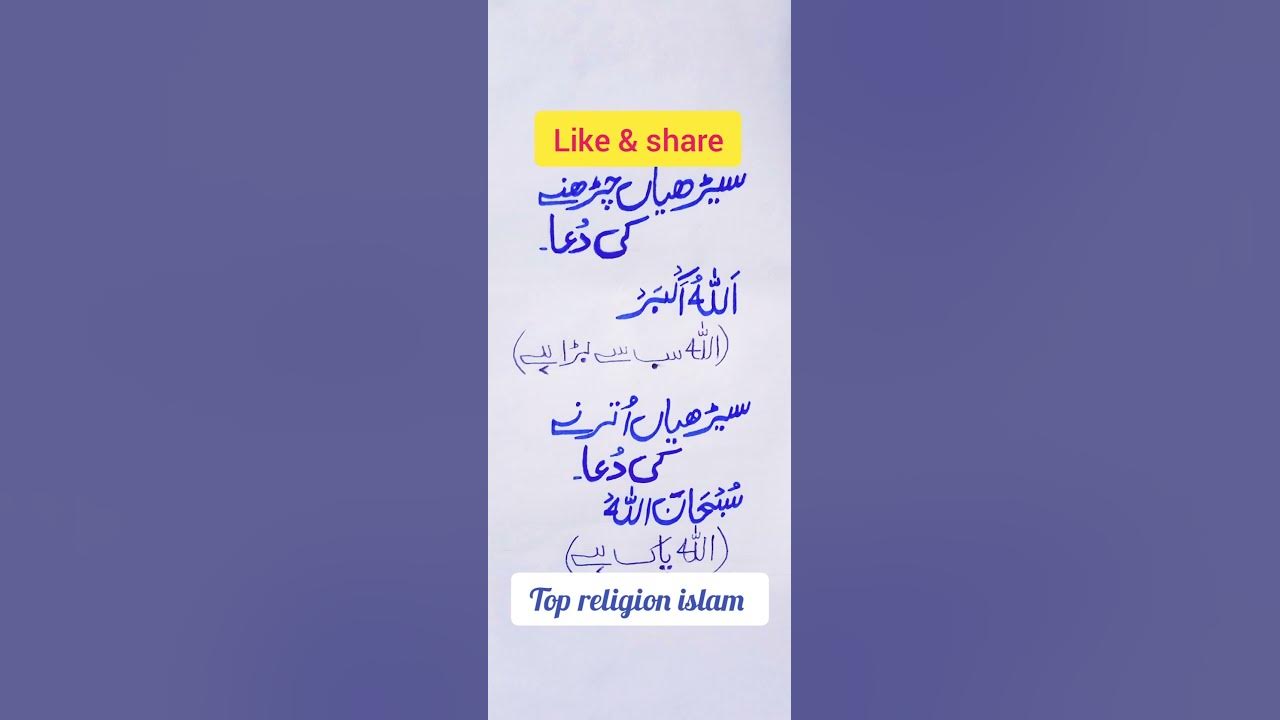 Like & share
سیڑھیاں چڑھنے
کی دُعا۔
اَللّٰهُ اَکْبَرْ
(اللّٰہ سب سے بڑا ہے)
سیڑھیاں اُترنے
کی دُعا۔
سُبْحَانَ اللّٰه
(اللّٰہ پاک ہے)
Top religion islam